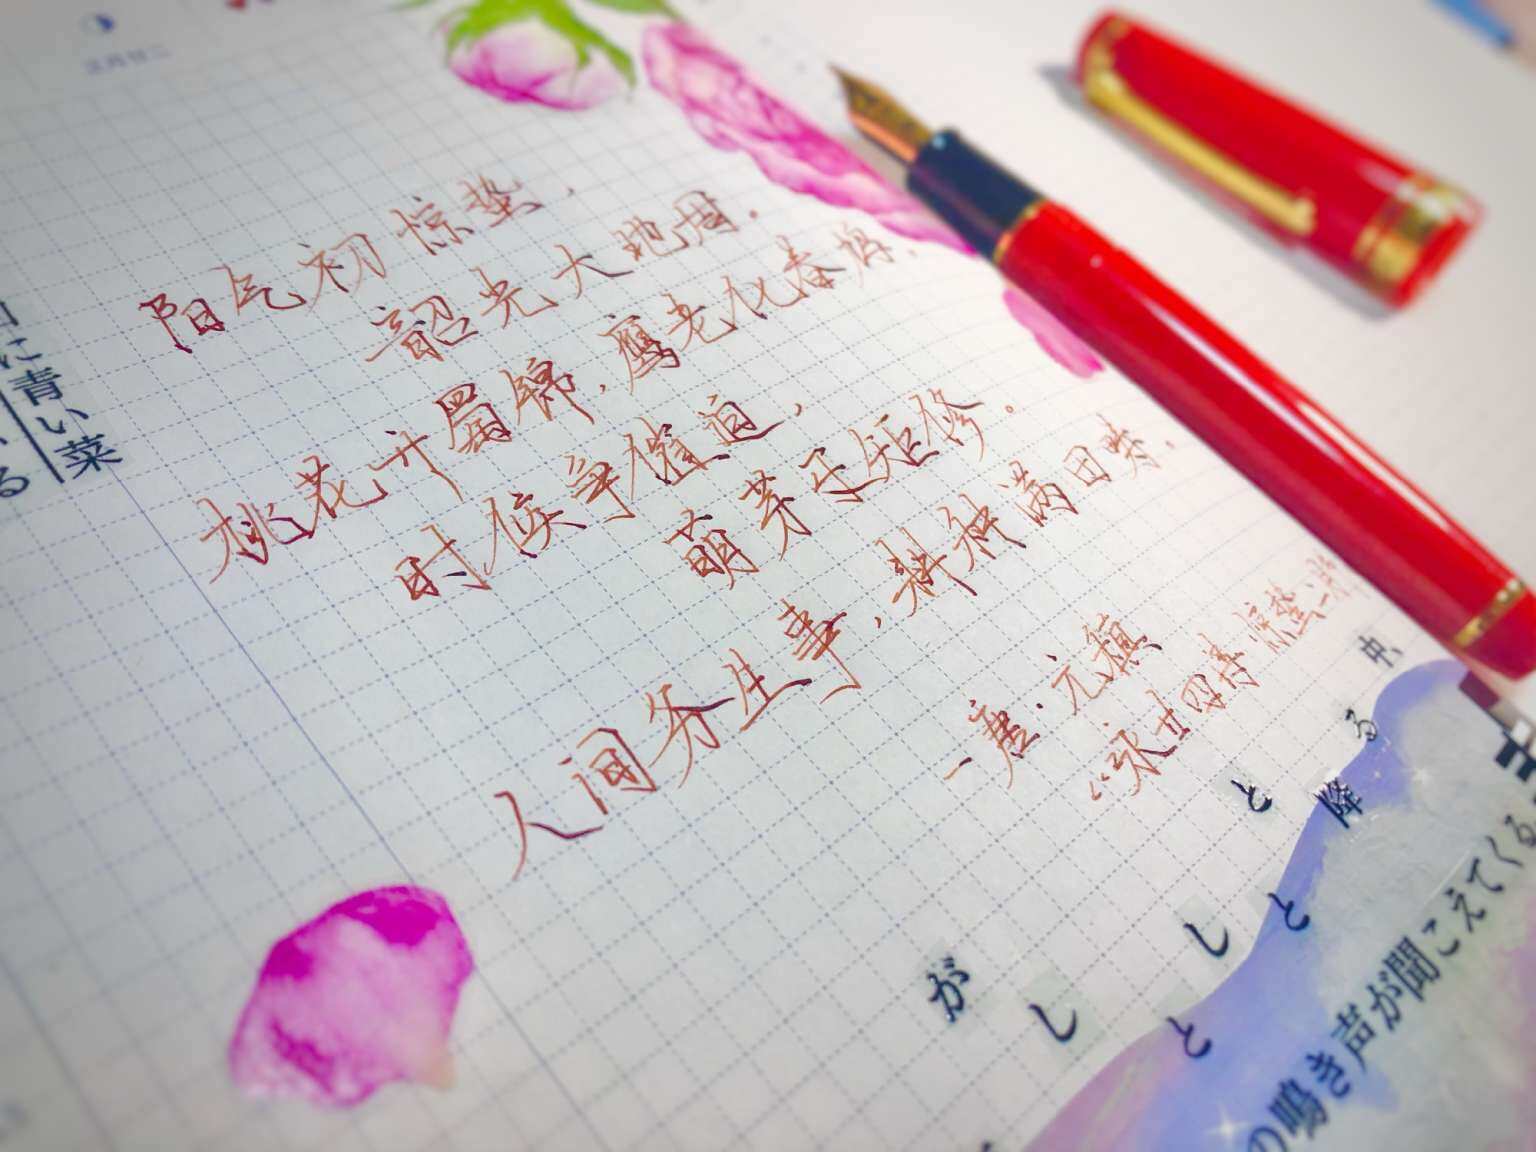 阳气初惊蛰,
韶光大地周.
桃花开蜀锦,鹰老化春鸠.
时候争催迫,
萌芽了矩修。
人间务生事,耕种满田畴.
—唐·元稹
“咏廿四气诗 惊蛰二月
に青い菜
る
中
る
と降
しと
がしと
の鳴き声が聞こえてくる